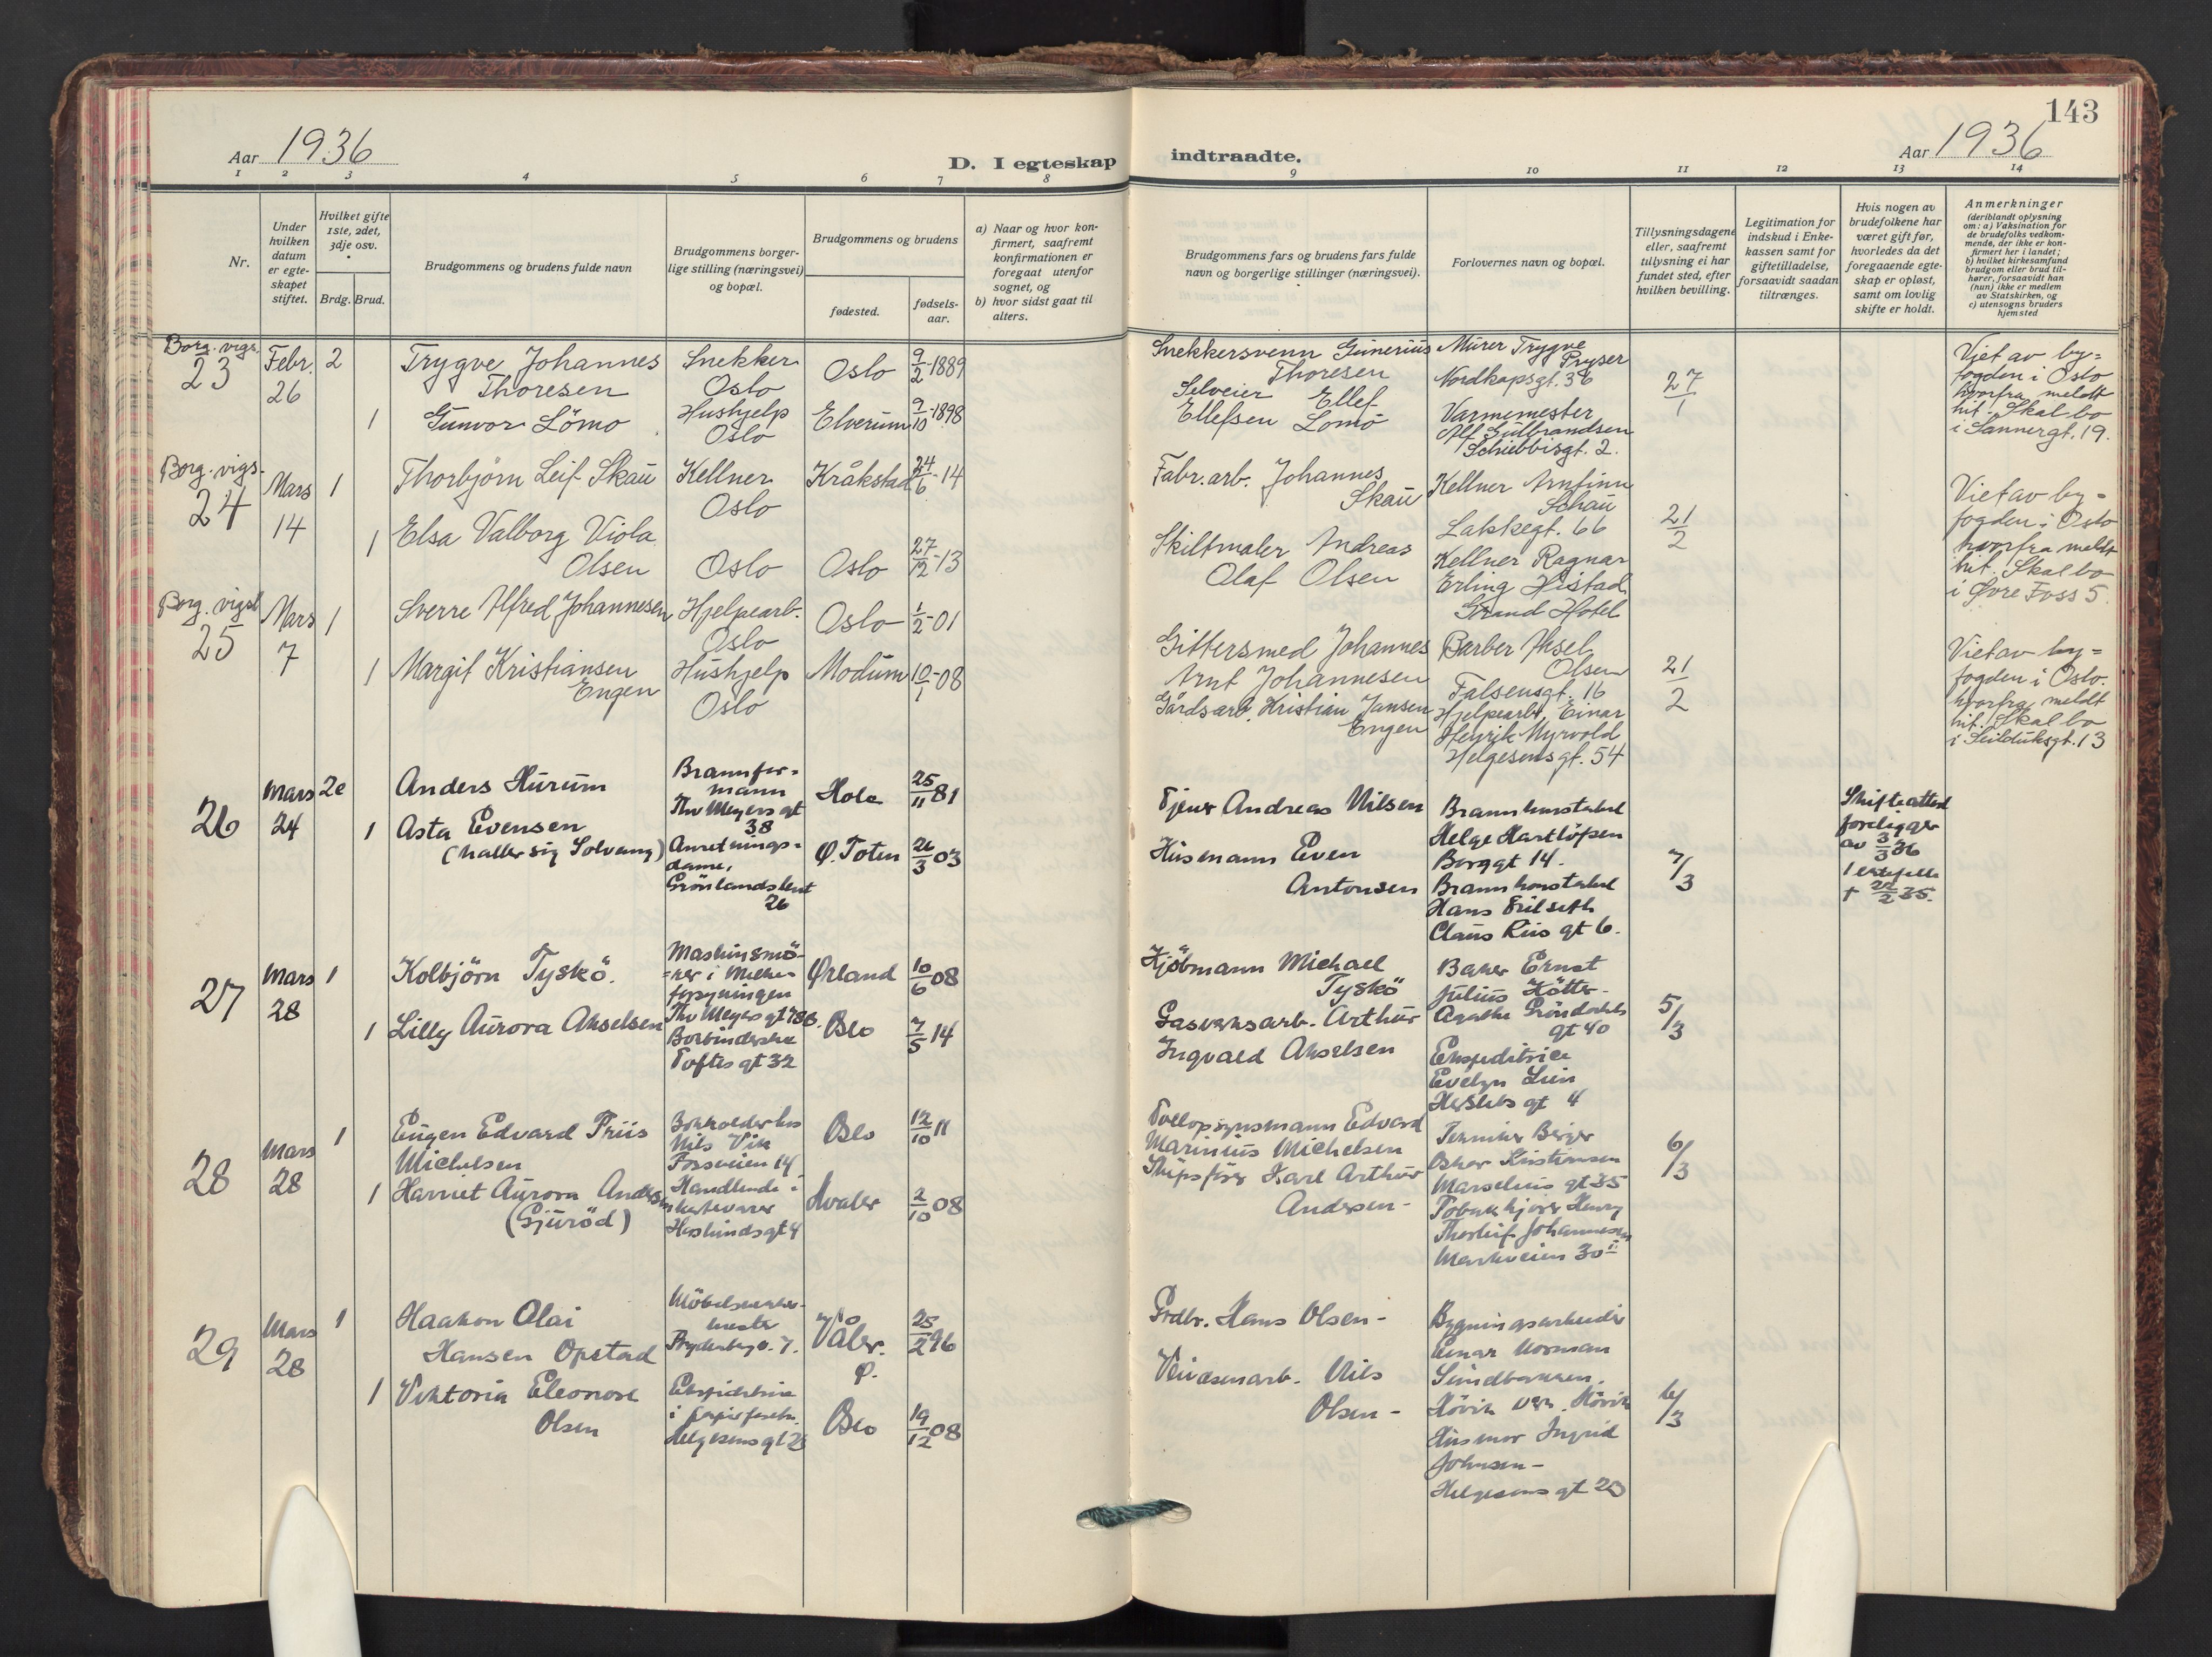 143
Aar 1936
D. I egteskap indtraadte.
Aar 1936
1 2 3 4 5 6 7 8 9 10 11 12 13 14
Nr.
Under hvilken datum er egteskapet stiftet.
Hvilket gifte 1ste, 2det, 3dje osv.
Brdg. Brud.
Brudgommens og brudens fulde navn
Brudgommens borgerlige stilling (næringsvei) og bopæl.
Brudgommens og brudens
fødested.
fødselsaar.
a) Naar og hvor konfirmert, saafremt konfirmationen er foregaat utenfor sognet, og
b) hvor sidst gaat til alters.
Brudgommens fars og brudens fars fulde navn og borgerlige stillinger (næringsvei).
Forlovernes navn og bopæl.
Tillysningsdagene eller, saafremt tillysning ei har fundet sted, efter hvilken bevilling.
Legitimation for indskud i Enkekassen samt for giftetilladelse, forsaavidt saadan tiltrænges.
Hvis nogen av brudefolkene har været gift før, hvorledes da det foregaaende egteskap er opløst, samt om lovlig skifte er holdt.
Anmerkninger
(deriblandt oplysning om: a) Vaksination for de brudefolks vedkommende, der ikke er konfirmert her i landet;
b) hvilket kirkesamfund brudgom eller brud tilhører, forsaavidt han (hun) ikke er medlem av Statskirken, og
c) utensogns bruders hjemsted
Borg. vigs.
23
Febr. 26
2
Trygve Johannes
Thoresen
Snekker
Oslo
Oslo
9/2-1889
1
Gunvor Lömo
Hushjelp
Oslo
Elverum
9/10-1898
Snekkersvenn Gunerius
Thoresen
Selveier Ellef
Ellefsen Lomo
Murer Trygve
Pryser
Nordkapsgt. 36
Varmemester
Alf Gulbrandsen
Schübbisgt. 2.
27/1
Viet av by=
fogden i Oslo
hvorfra meldt
hit. Skal bo
i Sannergt. 19.
Borg. vigs.
24
Mars 14
1
Thorbjörn Leif Skau
Kellner
Oslo
Kråkstad
24/6-14
1
Elsa Valborg Viola
Olsen
Oslo
Oslo
27/12-13
Fabr. arb. Johannes
Skau
Skiltmaler Andreas
Olaf Olsen
Kellner Arnfinn
Schau
Lakkegt. 66
Kellner Ragnar
Erling Histad
Grand Hotel
21/2
Viet av by=
fogden i Oslo
hvorfra meldt
hit. Skal bo
i Øvre Foss 5.
Borg. vigsl
25
Mars 7
1
Sverre Alfred Johannesen
Hjelpearb.
Oslo
Oslo
1/2-01
1
Margit Kristiansen
Engen
Hushjelp
Oslo
Modum
10/1-08
Gittersmed Johannes
Arnt Johannesen
Gårdsarb. Kristian Jansen
Engen
Barber Aksel
Olsen
Falsensgt. 16
Hjelpearb. Einar
Henrik Myrvold
Helgesensgt. 54
21/2
Viet av by=
fogden i Oslo.
hvorfra meldt
hit. Skal bo
i Seilduksgt. 13
26
Mars 24
2e
Anders Hurum
Brannfor=
mann
Thv Meyers gt
38
Hole
25/11 81
1
Asta Evensen
(kaller sig Solvang)
Anretnings=
dame,
Grönlandsleut
26
Ø. Toten
26/3 03
Tjener Andreas Nilsen
Husmann Even
Antonsen
Brannkonstabel
Helge Hartlöfsen
Borggt 14.
Brannkonstabel
Hans Frilseth
Claus Riis gt 6.
7/3
Skifteattest
foreligger
av 3/3 36
1 ektefelle
† 22/2 35.
27
Mars 28
1
Kolbjörn Tyskö.
Maskinsmö-
=rer i
Thv Meyers gt 78B.
Ørland
10/6 08
1
Lilly Aurora Akselsen
Bokbinderske
Toftes gt 32
Oslo
7/5 14
Kjöbmann Michael
Tyskö
Gasverksarb. Arthur
Ingvald Akselsen
Baker Ernst
Julius Hötte-
Agathe Gröndahls
gt 40
Ekspeditrice
Evelyn Lien
Herslebs gt 4
5/3
28
Mars 28
1
Eugen Edvard Friis
Michelsen
Bokholder hos
Nils Vik
Fossveien 14
Oslo
12/10 11
1
Harriet Aurora Andersen
(Gjuröd)
Handlende i
Heslunds gt 4
Hvaler
2/10 08
Tollopsynsmann Edvard
Marinius Michelsen
Skipsförer Karl Arthur
Andersen-
Tekniker Birger
Oskar Kristiansen
Marselius gt 35
Henry
Thorleif Johannesen
Markveien 30
6/3
29
Mars 28
1
Haakon Olai
Hansen Opstad
Möbelsnekker-
mester
Våler.
Ø.
25/2 96
1
Viktoria Eleonore
Olsen
Ekspeditrice
i papirforretn.
Helgesens gt 23
Oslo
19/12 08
Grdbr. Hans Olsen-
Nils
Olsen-
Bygningsarbeider
Einar Norman
Sundbakken.
Hövik verk. Hövik
Husmor Ingrid
Johnsen-
Helgesens gt 23
6/3